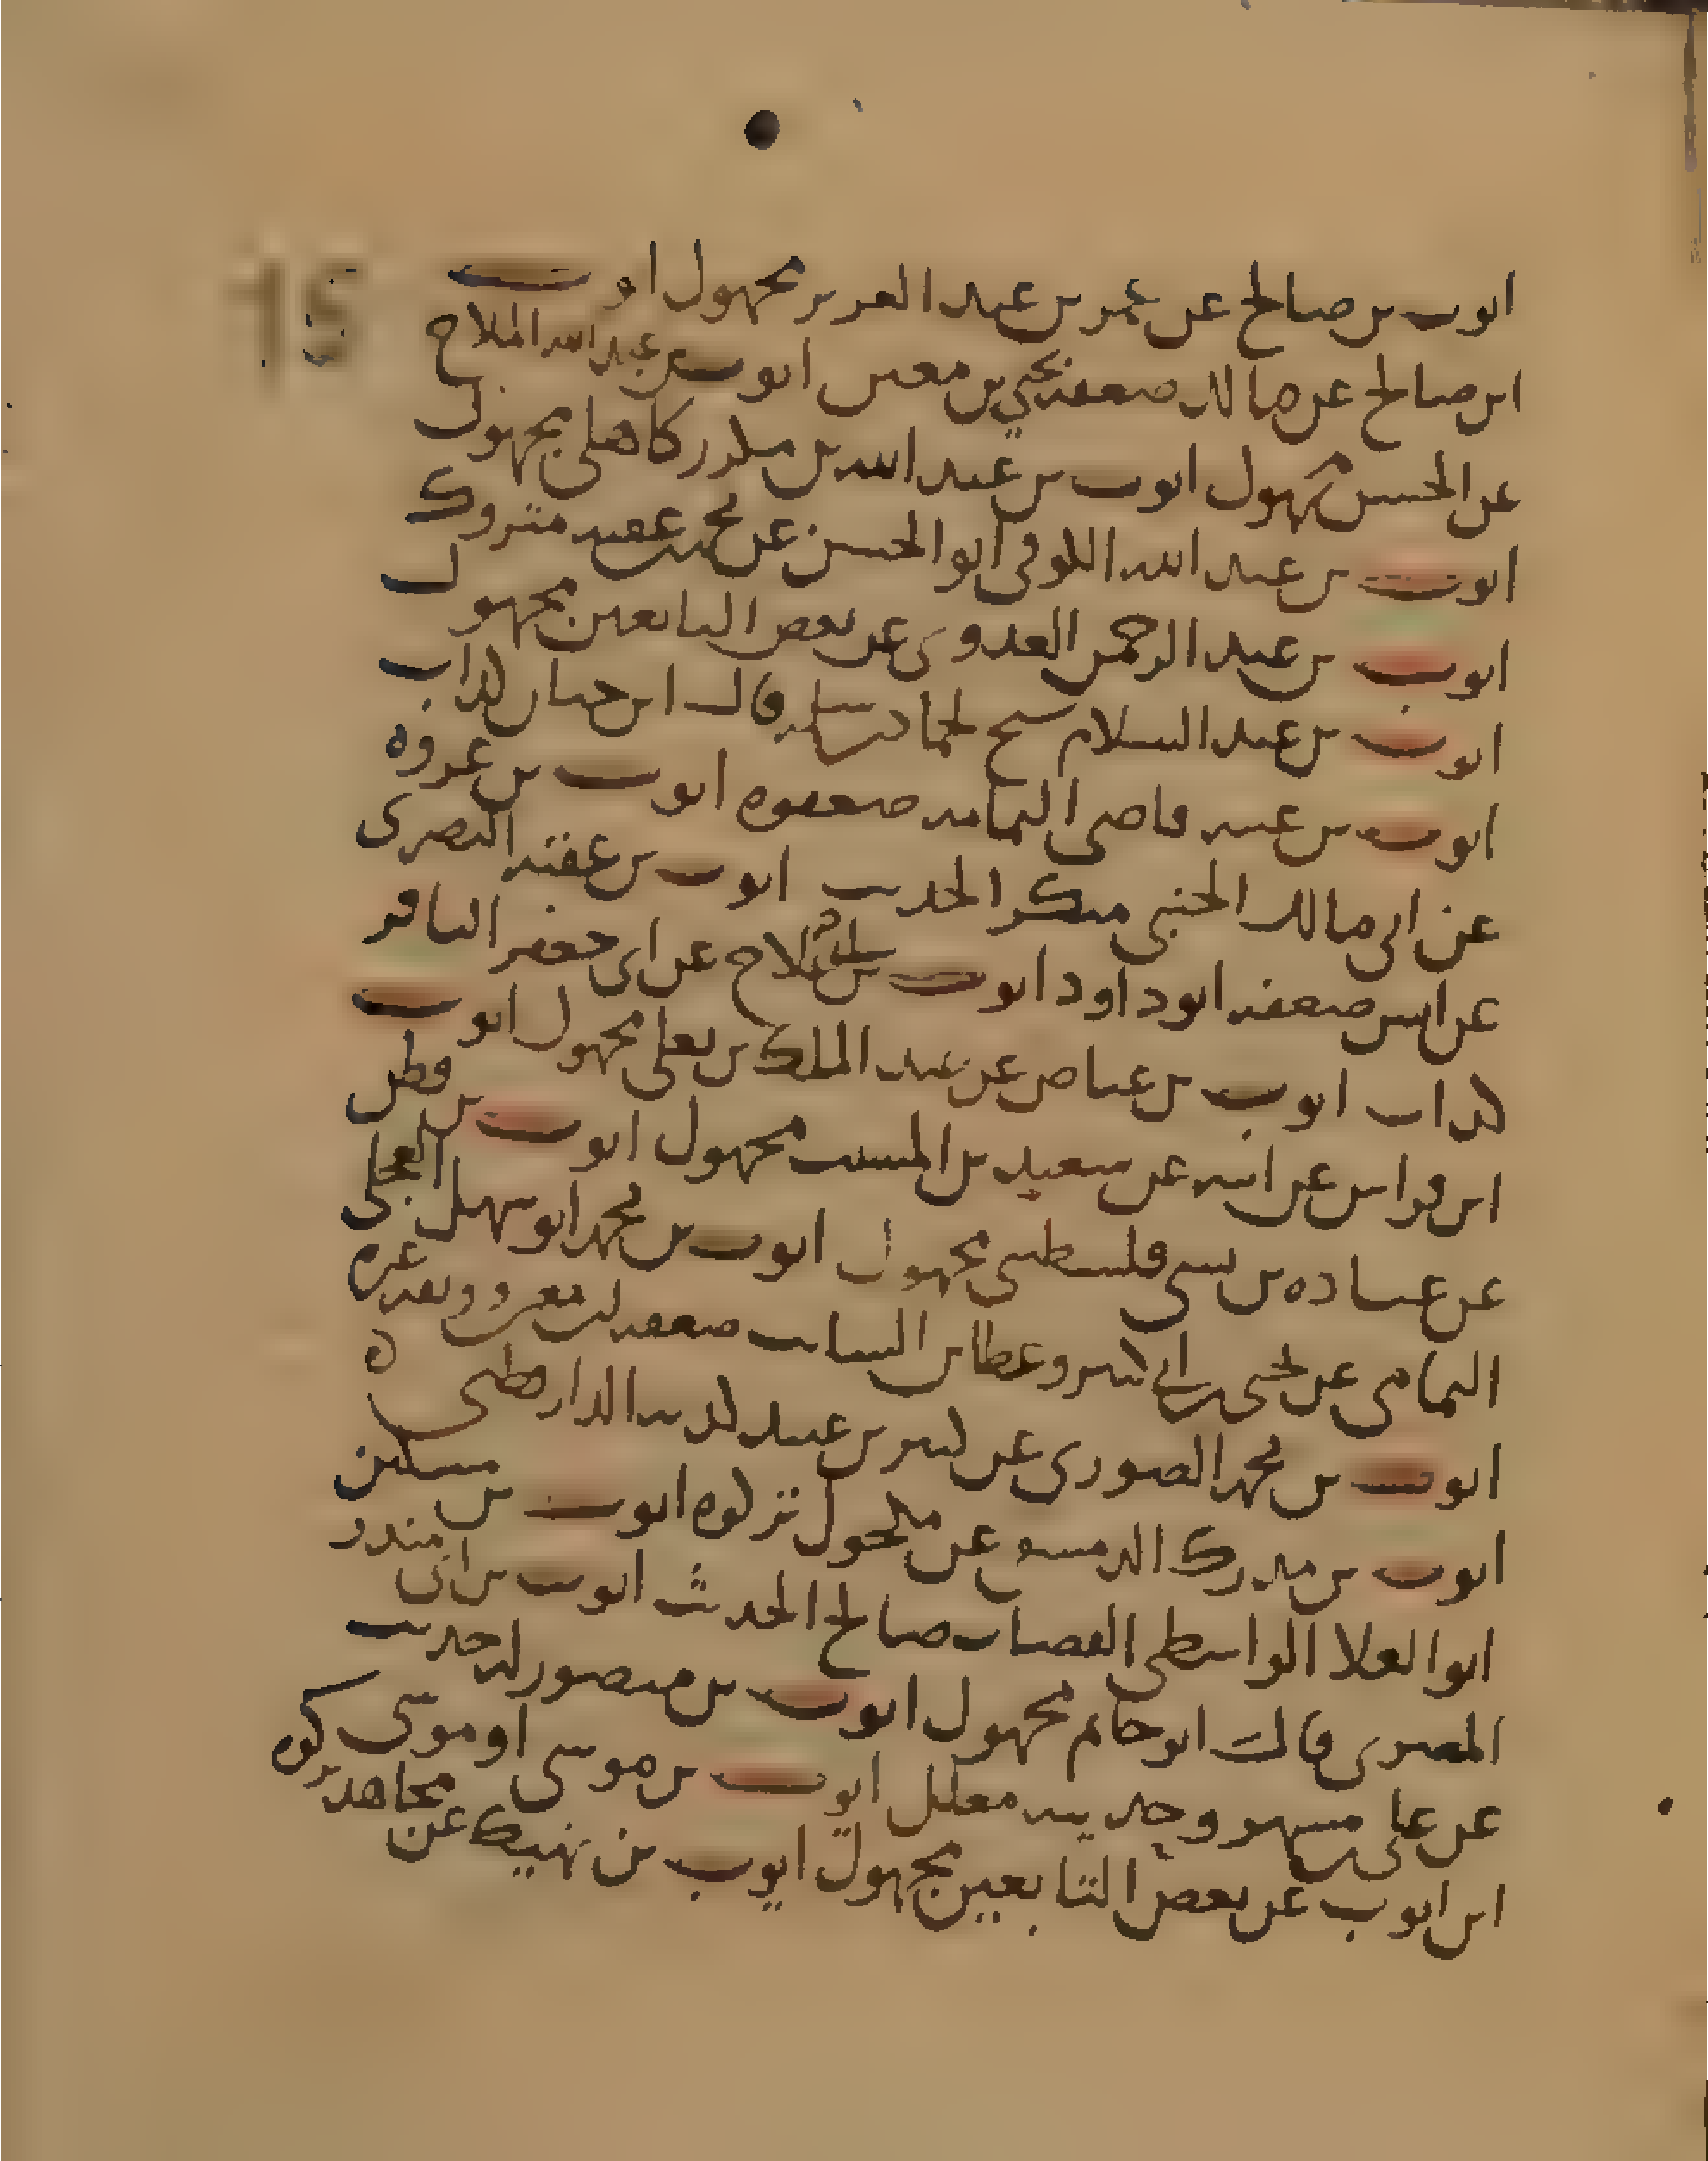 ايوب بن صالح عن عمر بن عبد العزيز مجهول ايوب
ابن صالح عن مالك ضعفه يحيى بن معين ايوب بن عبد الله الملاح
عن الحسن مجهول ايوب بن عبد الله بن مكرز كاهلي مجهول
ايوب بن عبد الله الكوفي ابو الحسن عن محمد بن عقبه متروك
ايوب بن عبد الرحمن العدوي عن بعض التابعين مجهول
ايوب بن عبد السلام شيخ لحماد بن سلمه قال ابن حبان كذاب
ايوب بن عتبه قاضي اليمامه ضعفوه ايوب بن عروه
عن ابي مالك الجنبي منكر الحديث ايوب بن عقبه البصري
عن انس ضعفه ابو داود ايوب بن علاج عن ابي جعفر الباقر
كذاب ايوب بن عياض عن عبد الملك بن يعلى مجهول ايوب
ابن فراس عن ابيه عن سعيد بن المسيب مجهول ايوب بن قطن
عن عباده بن نسي فلسطيني مجهول ايوب بن محمد ابو سهل العجلي
اليمامي عن يحيى بن ابي كثير وعطا بن السايب ضعفه ابن معين ووثقه غيره
ايوب بن محمد الصوري عن كثير بن عبيد كذبه الدارقطني ه
ايوب بن مدرك الدمشقي عن مكحول تركوه ايوب بن مسكين
ابو العلا الواسطي القصاب صالح الحديث ايوب بن ابي مندر
المصري قال ابو حاتم مجهول ايوب بن منصور له حديث
عن علي بن مسهر وحديثه معلل ايوب بن موسى او موسى
ابن ايوب عن بعض التابعين مجهول ايوب بن نهيك عن مجاهد تركوه